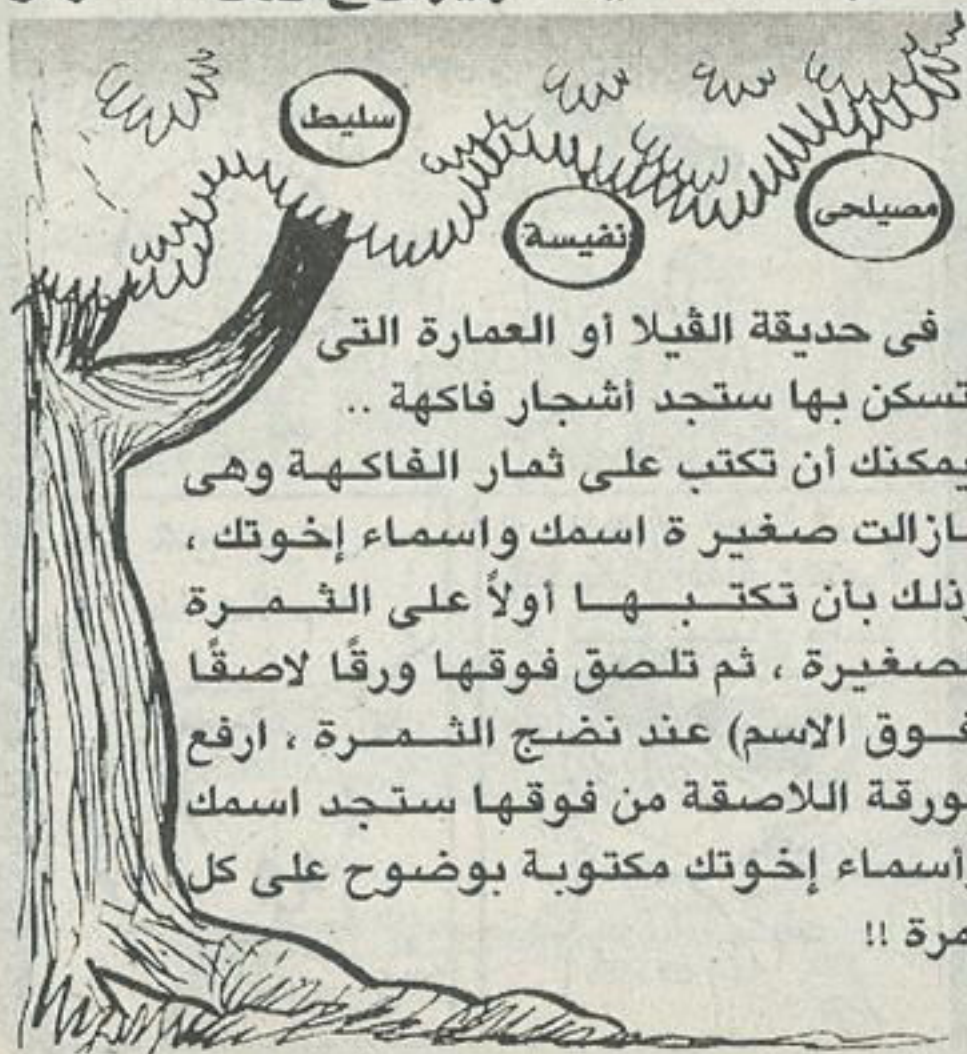 سليط
نفيسة
مصيلحى
فى حديقة الڤيلا أو العمارة التى
تسكن بها ستجد أشجار فاكهة ..
يمكنك أن تكتب على ثمار الفاكهة وهى
ازالت صغير ة اسمك واسماء إخوتك ،
ذلك بأن تكتبها أولاً على الثمرة
لصغيرة ، ثم تلصق فوقها ورقًا لاصقًا
فوق الاسم) عند نضج الثمرة ، ارفع
لورقة اللاصقة من فوقها ستجد اسمك
أسماء إخوتك مكتوبة بوضوح على كل
مرة !!